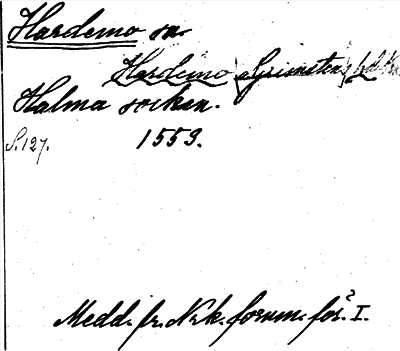 Hardemo sn.
Hardemo Grimstens hd
Halma socken.
S. 127. 1559.
Medd. fr. Nrk. fornm. för. I.